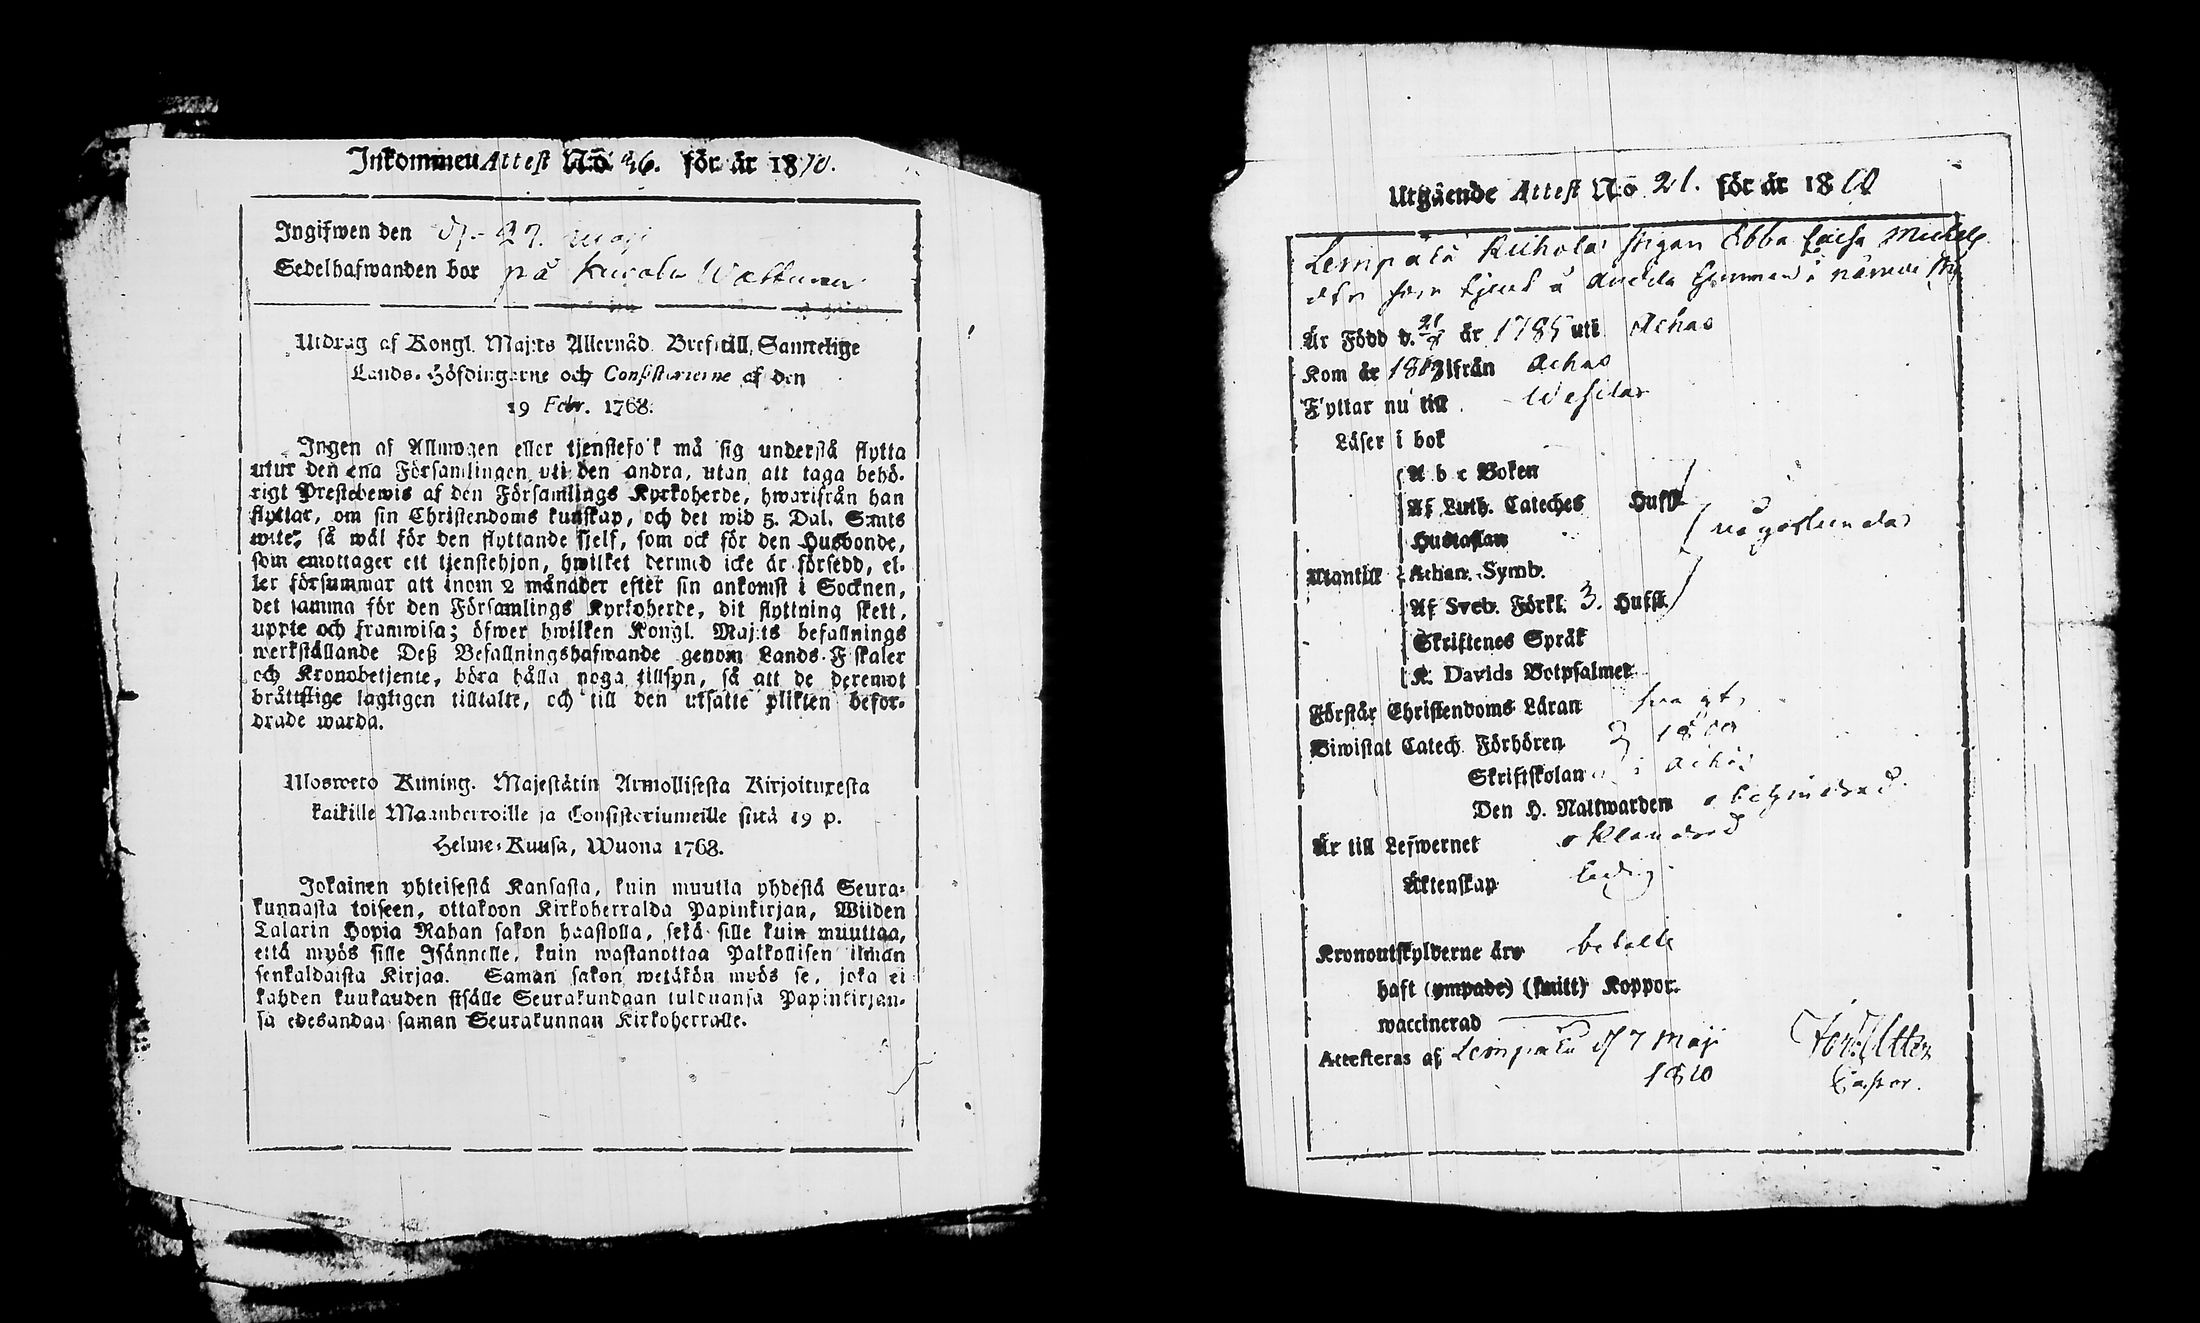 Inkommen Attest No 46. för år 1810.
Ingifwen den d. 27. maji
Sedelhafwanden bor på
Utdrag af Kongl. Maj:ts Allernåd. Bref till Samtelige
Lands-Höfdingarne och Consistorierne af den
19 Febr. 1768.
Ingen af Allmogen eller tjenstefolk må sig understå flytta
utur den ena Församlingen uti den andra, utan att taga behö-
rigt Prestebewis af den Församlings Kyrkoherde, hwarifrån han
flyttar, om sin Christendoms kunskap, och det wid 5. Dal. S:mts
wite, så wäl för den flyttande sjelf, som ock för den Husbonde,
som emottager ett tjenstehjon, hwilket dermed icke är försedd, el-
ler försummar att inom 2 månader efter sin ankomst i Socknen,
det samma för den Församlings Kyrkoherde, dit flyttning skett,
uppte och framwisa; öfwer hwilken Kongl. Maj:ts befallnings
werkställande Deß Befallningshafwande genom Lands-Fiskaler
och Kronobetjente, böra hålla noga tillsyn, så att de deremot
bråttslige lagligen tilltalte, och till den utsatte plikten befor-
drade warda.
Ulosweto Kuning. Majestätin Armollisesta Kirjoituxesta
kaikille Maanherroille ja Consistoriumeille siitä 19 p.
Helme-Kuusa, Wuona 1768.
Jokainen yhteisestä Kansasta, kuin muutta yhdestä Seura-
kunnasta toiseen, ottakoon Kirkoherralda Papinkirjan, Wiiden
Talarin Hopia Rahan sakon haastolla, sekä sille kuin muuttaa,
että myös sille Isännelle, kuin wastanottaa Palkollisen ilman
senkaldaista Kirjaa. Saman sakon wetäkön myös se, joka ei
kahden kuukauden sisälle Seurakundaan tulduansa Papinkirjan-
sa edesandaa saman Seurakunnan Kirkoherralle.
Utgående Attest No 21. för år 1810
Lempälä Kuihola pigan Ebba Caisa Michels
dtr som tjent å hemman i
Är Född d. 21/9 år 1785 uti Achas
Kom år 1803 ifrån Achas
Flyttar nu till
Läser i bok
A b c Boken
Af Luth. Cateches Hufst
Hustaflan
någorlunda
Utantill Athan. Symb.
Af Sveb. Förkl. 3. Hufst.
Skriftenes Språk
K. Davids Botpsalmer
Förstår Christendoms Läran swagt
Biwistat Catech. Förhören 1809
Skriftskolan i Achas
Den H. Nattwarden obehindrad
Är till Lefwernet oklandrad
Äktenskap ledig
Kronoutskylderne äro betalte
haft (ympade) (smitt) Koppor.
waccinerad
Attesteras af Lempälä d 7 Maji
1810
Pastor.